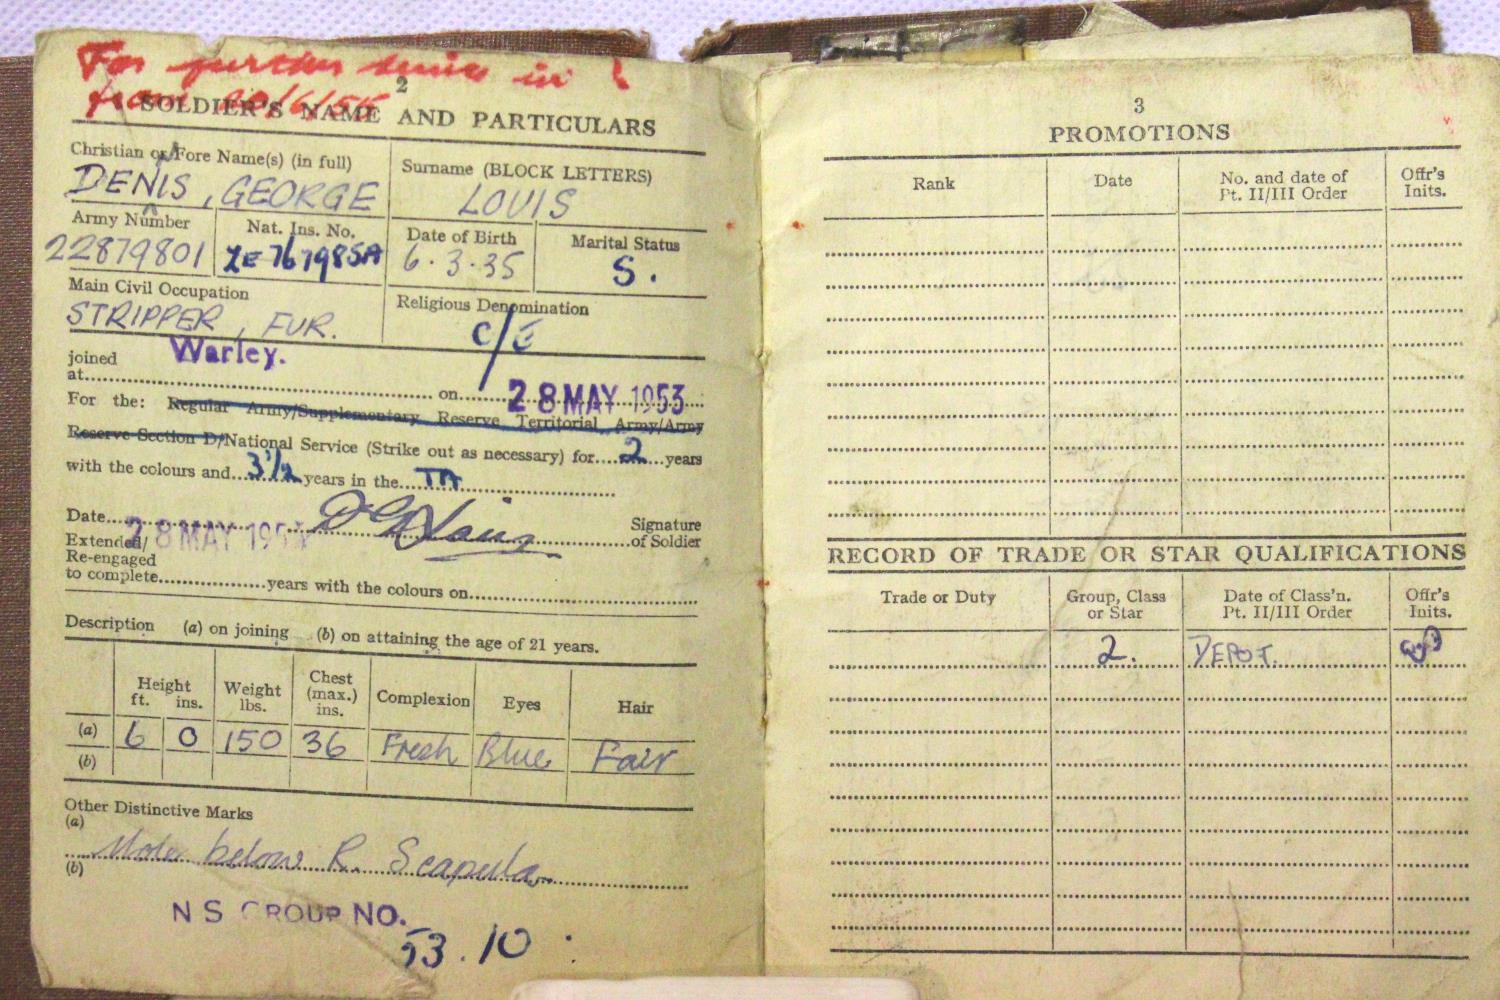 For further service in
from 20/6/55
2
SOLDIER'S NAME AND PARTICULARS
Christian or Fore Name(s) (in full)
DENIS, GEORGE
Surname (BLOCK LETTERS)
LOUIS
Army Number
22879801
Nat. Ins. No.
ZE 767985A
Date of Birth
6.3.35
Marital Status
S.
Main Civil Occupation
STRIPPER, FUR.
Religious Denomination
C/E
joined
at Warley. on 28 MAY 1953
For the: Regular Army/Supplementary Reserve Territorial Army/Army
Reserve Section D/National Service (Strike out as necessary) for 2 years
with the colours and 3½ years in the TA
Date 28 MAY 1953 Signature
of Soldier
Extended/
Re-engaged
to complete years with the colours on
Description (a) on joining (b) on attaining the age of 21 years.
Height
ft. ins.
Weight
lbs.
Chest
(max.)
ins.
Complexion
Eyes
Hair
(a) 6 0 150 36 Fresh Blue Fair
(b)
Other Distinctive Marks
(a)
Mole below R. Scapula
(b)
N S GROUP NO.
53.10
3
PROMOTIONS
Rank
Date
No. and date of
Pt. II/III Order
Offr's
Inits.
RECORD OF TRADE OR STAR QUALIFICATIONS
Trade or Duty
Group, Class
or Star
Date of Class'n.
Pt. II/III Order
Offr's
Inits.
2. DEPOT.